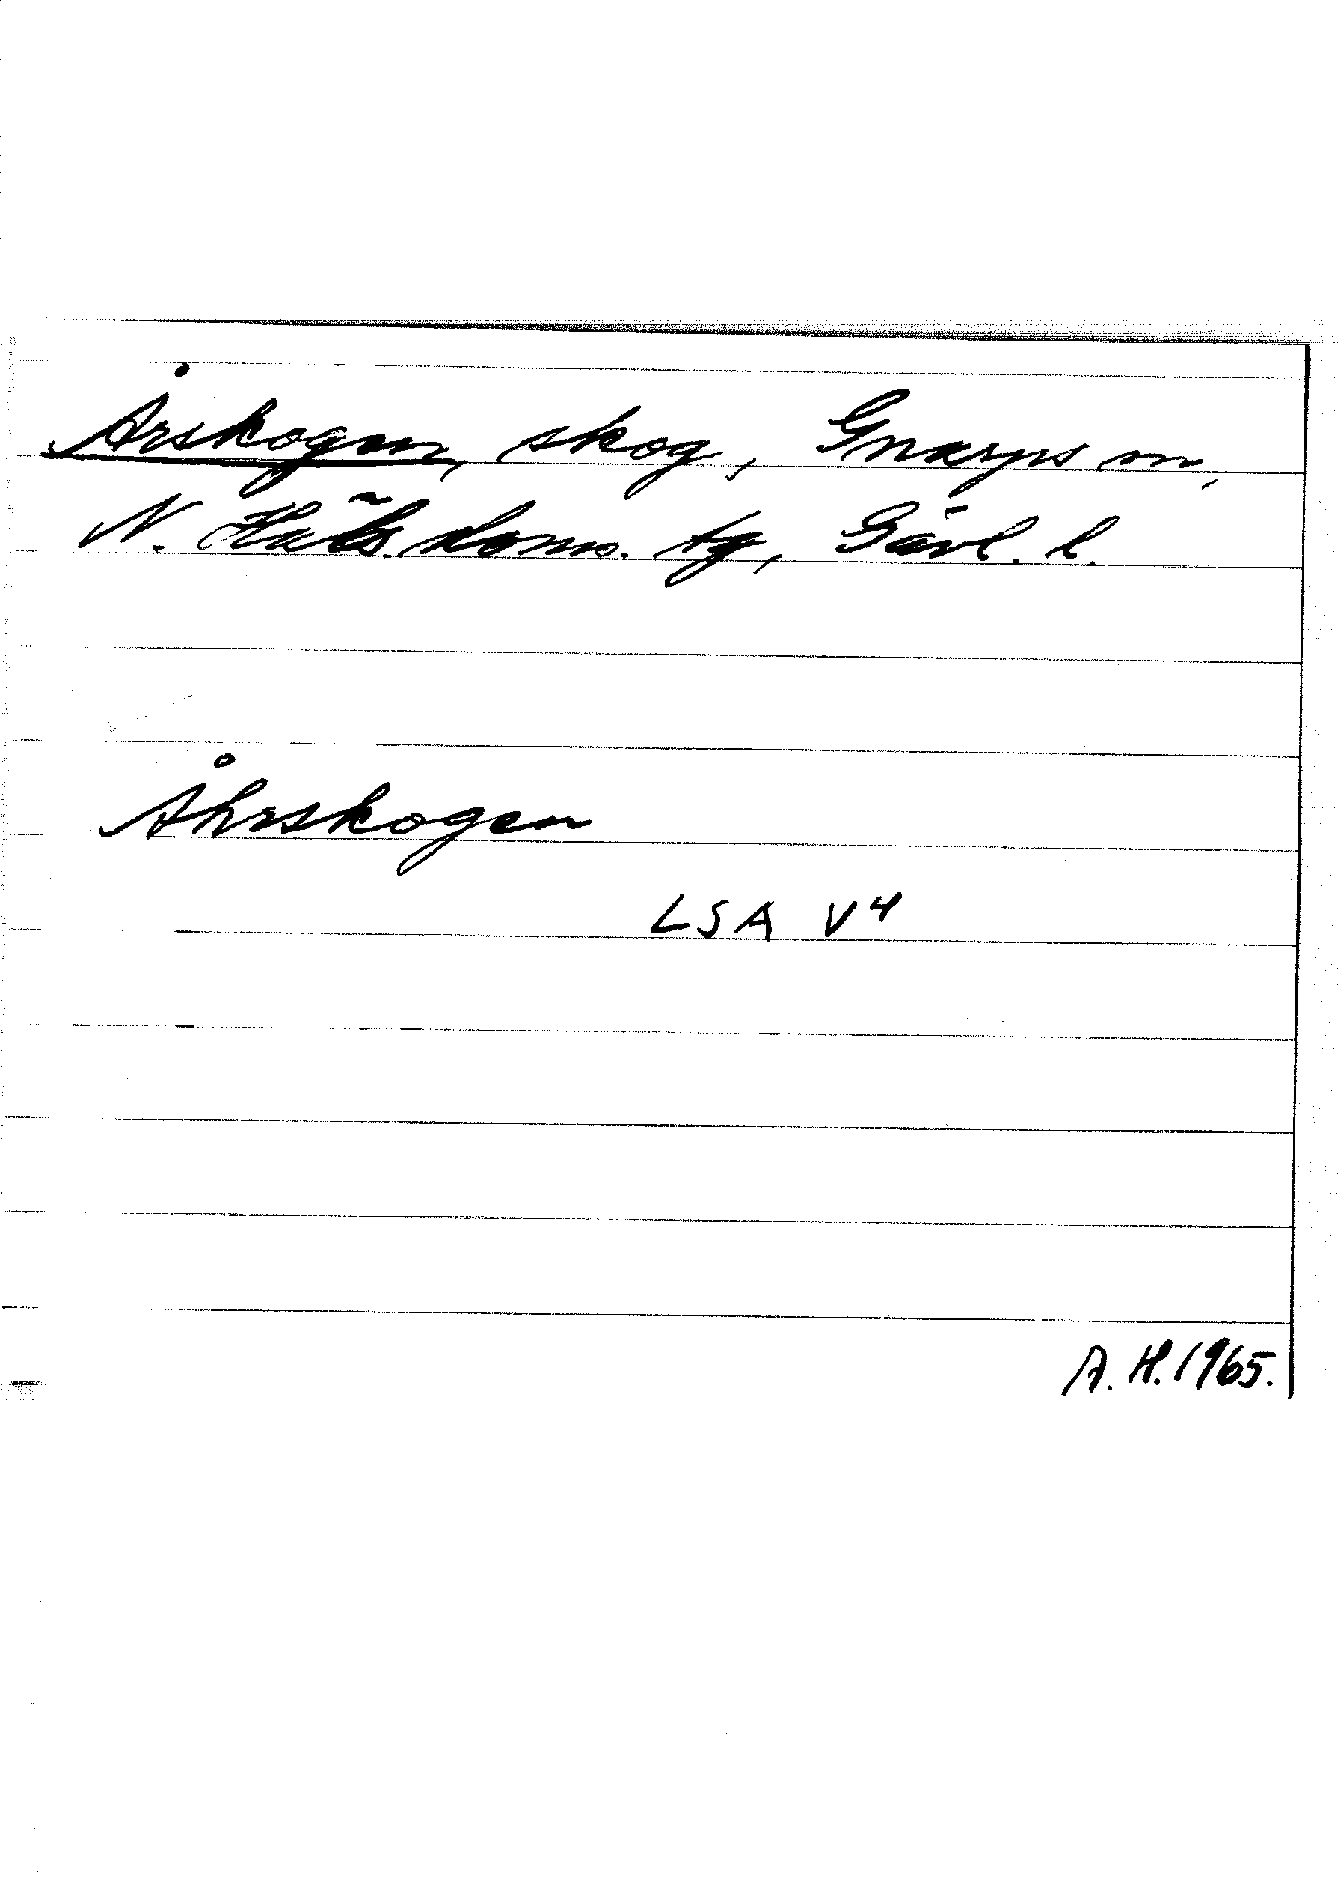 Årskogen, skog, Gnarps sn,
N. Häls. doms. tg, Gävl. l.
Åhrskogen
LSA V4
A. H. 1965.